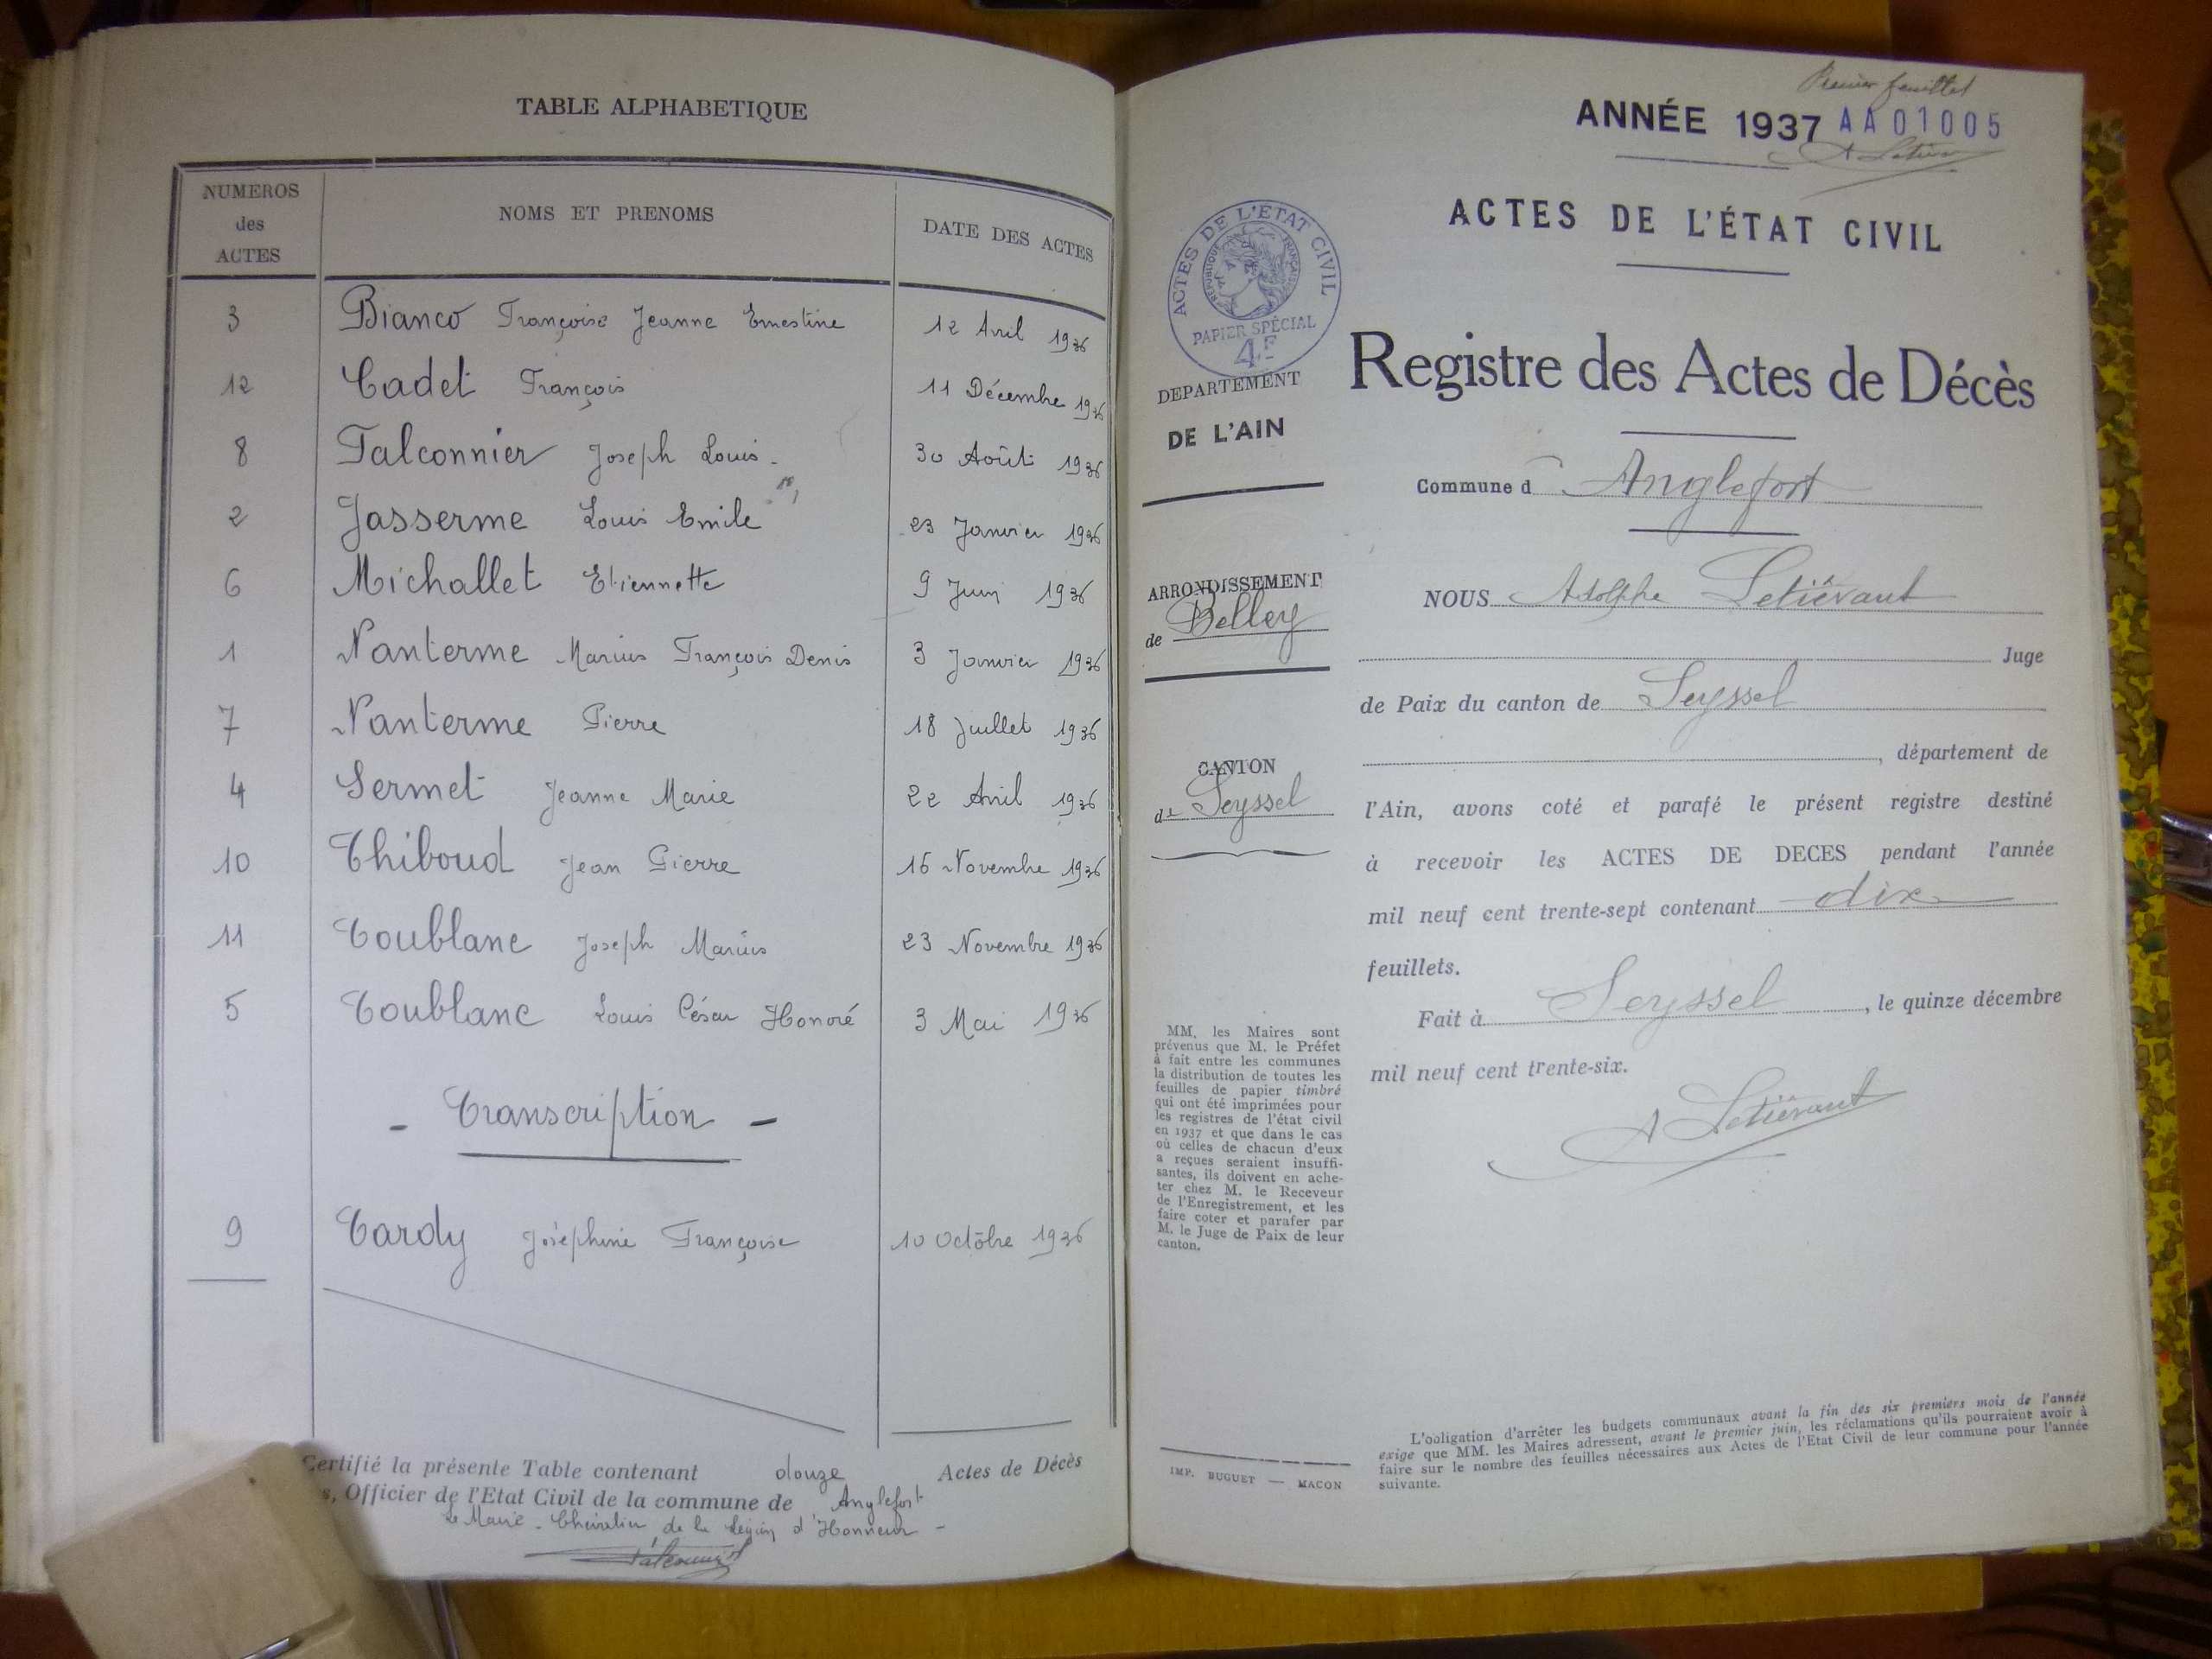 TABLE ALPHABETIQUE
NUMEROS
des
ACTES
NOMS ET PRENOMS
DATE DES ACTES
3 Bianco Françoise Jeanne Ernestine 12 Avril 1936
12 Cadet François 11 Décembre 1936
8 Falconnier Joseph Louis. 30 Août 1936
2 Jasserme Louis Emile 23 Janvier 1936
6 Michallet Etiennette 9 Juin 1936
1 Nanterme Marius François Denis 3 Janvier 1936
7 Nanterme Pierre 18 Juillet 1936
4 Sermet Jeanne Marie 22 Avril 1936
10 Thiboud Jean Pierre 16 Novembre 1936
11 Toublanc Joseph Marius 23 Novembre 1936
5 Toublanc Louis César Honoré 3 Mai 1936
- Transcription -
9 Tardy Joséphine Françoise 10 Octobre 1936
Certifié la présente Table contenant douze Actes de Décès
s, Officier de l'Etat Civil de la commune de Anglefort
Le Maire - Chevalier de la Légion d'Honneur -
Premier feuillet
ANNÉE 1937 AA01005
A Letiévant
ACTES DE L'ÉTAT CIVIL
ACTES DE L'ETAT CIVIL
REPUBLIQUE FRANÇAISE
PAPIER SPÉCIAL
4F
DEPARTEMENT
DE L'AIN
ARRONDISSEMENT
de Belley
CANTON
de Seyssel
MM. les Maires sont
prévenus que M. le Préfet
à fait entre les communes
la distribution de toutes les
feuilles de papier timbré
qui ont été imprimées pour
les registres de l'état civil
en 1937 et que dans le cas
où celles de chacun d'eux
a reçues seraient insuffi-
santes, ils doivent en ache-
ter chez M. le Receveur
de l'Enregistrement, et les
faire coter et parafer par
M. le Juge de Paix de leur
canton.
IMP. BUGUET — MACON
Registre des Actes de Décès
Commune d'Anglefort
NOUS Adolphe Letiévant
Juge
de Paix du canton de Seyssel
, département de
l'Ain, avons coté et parafé le présent registre destiné
à recevoir les ACTES DE DECES pendant l'année
mil neuf cent trente-sept contenant dix
feuillets.
Fait à Seyssel, le quinze décembre
mil neuf cent trente-six.
A Letiévant
L'obligation d'arrêter les budgets communaux avant la fin des six premiers mois de l'année
exige que MM. les Maires adressent, avant le premier juin, les réclamations qu'ils pourraient avoir à
faire sur le nombre des feuilles nécessaires aux Actes de l'Etat Civil de leur commune pour l'année
suivante.